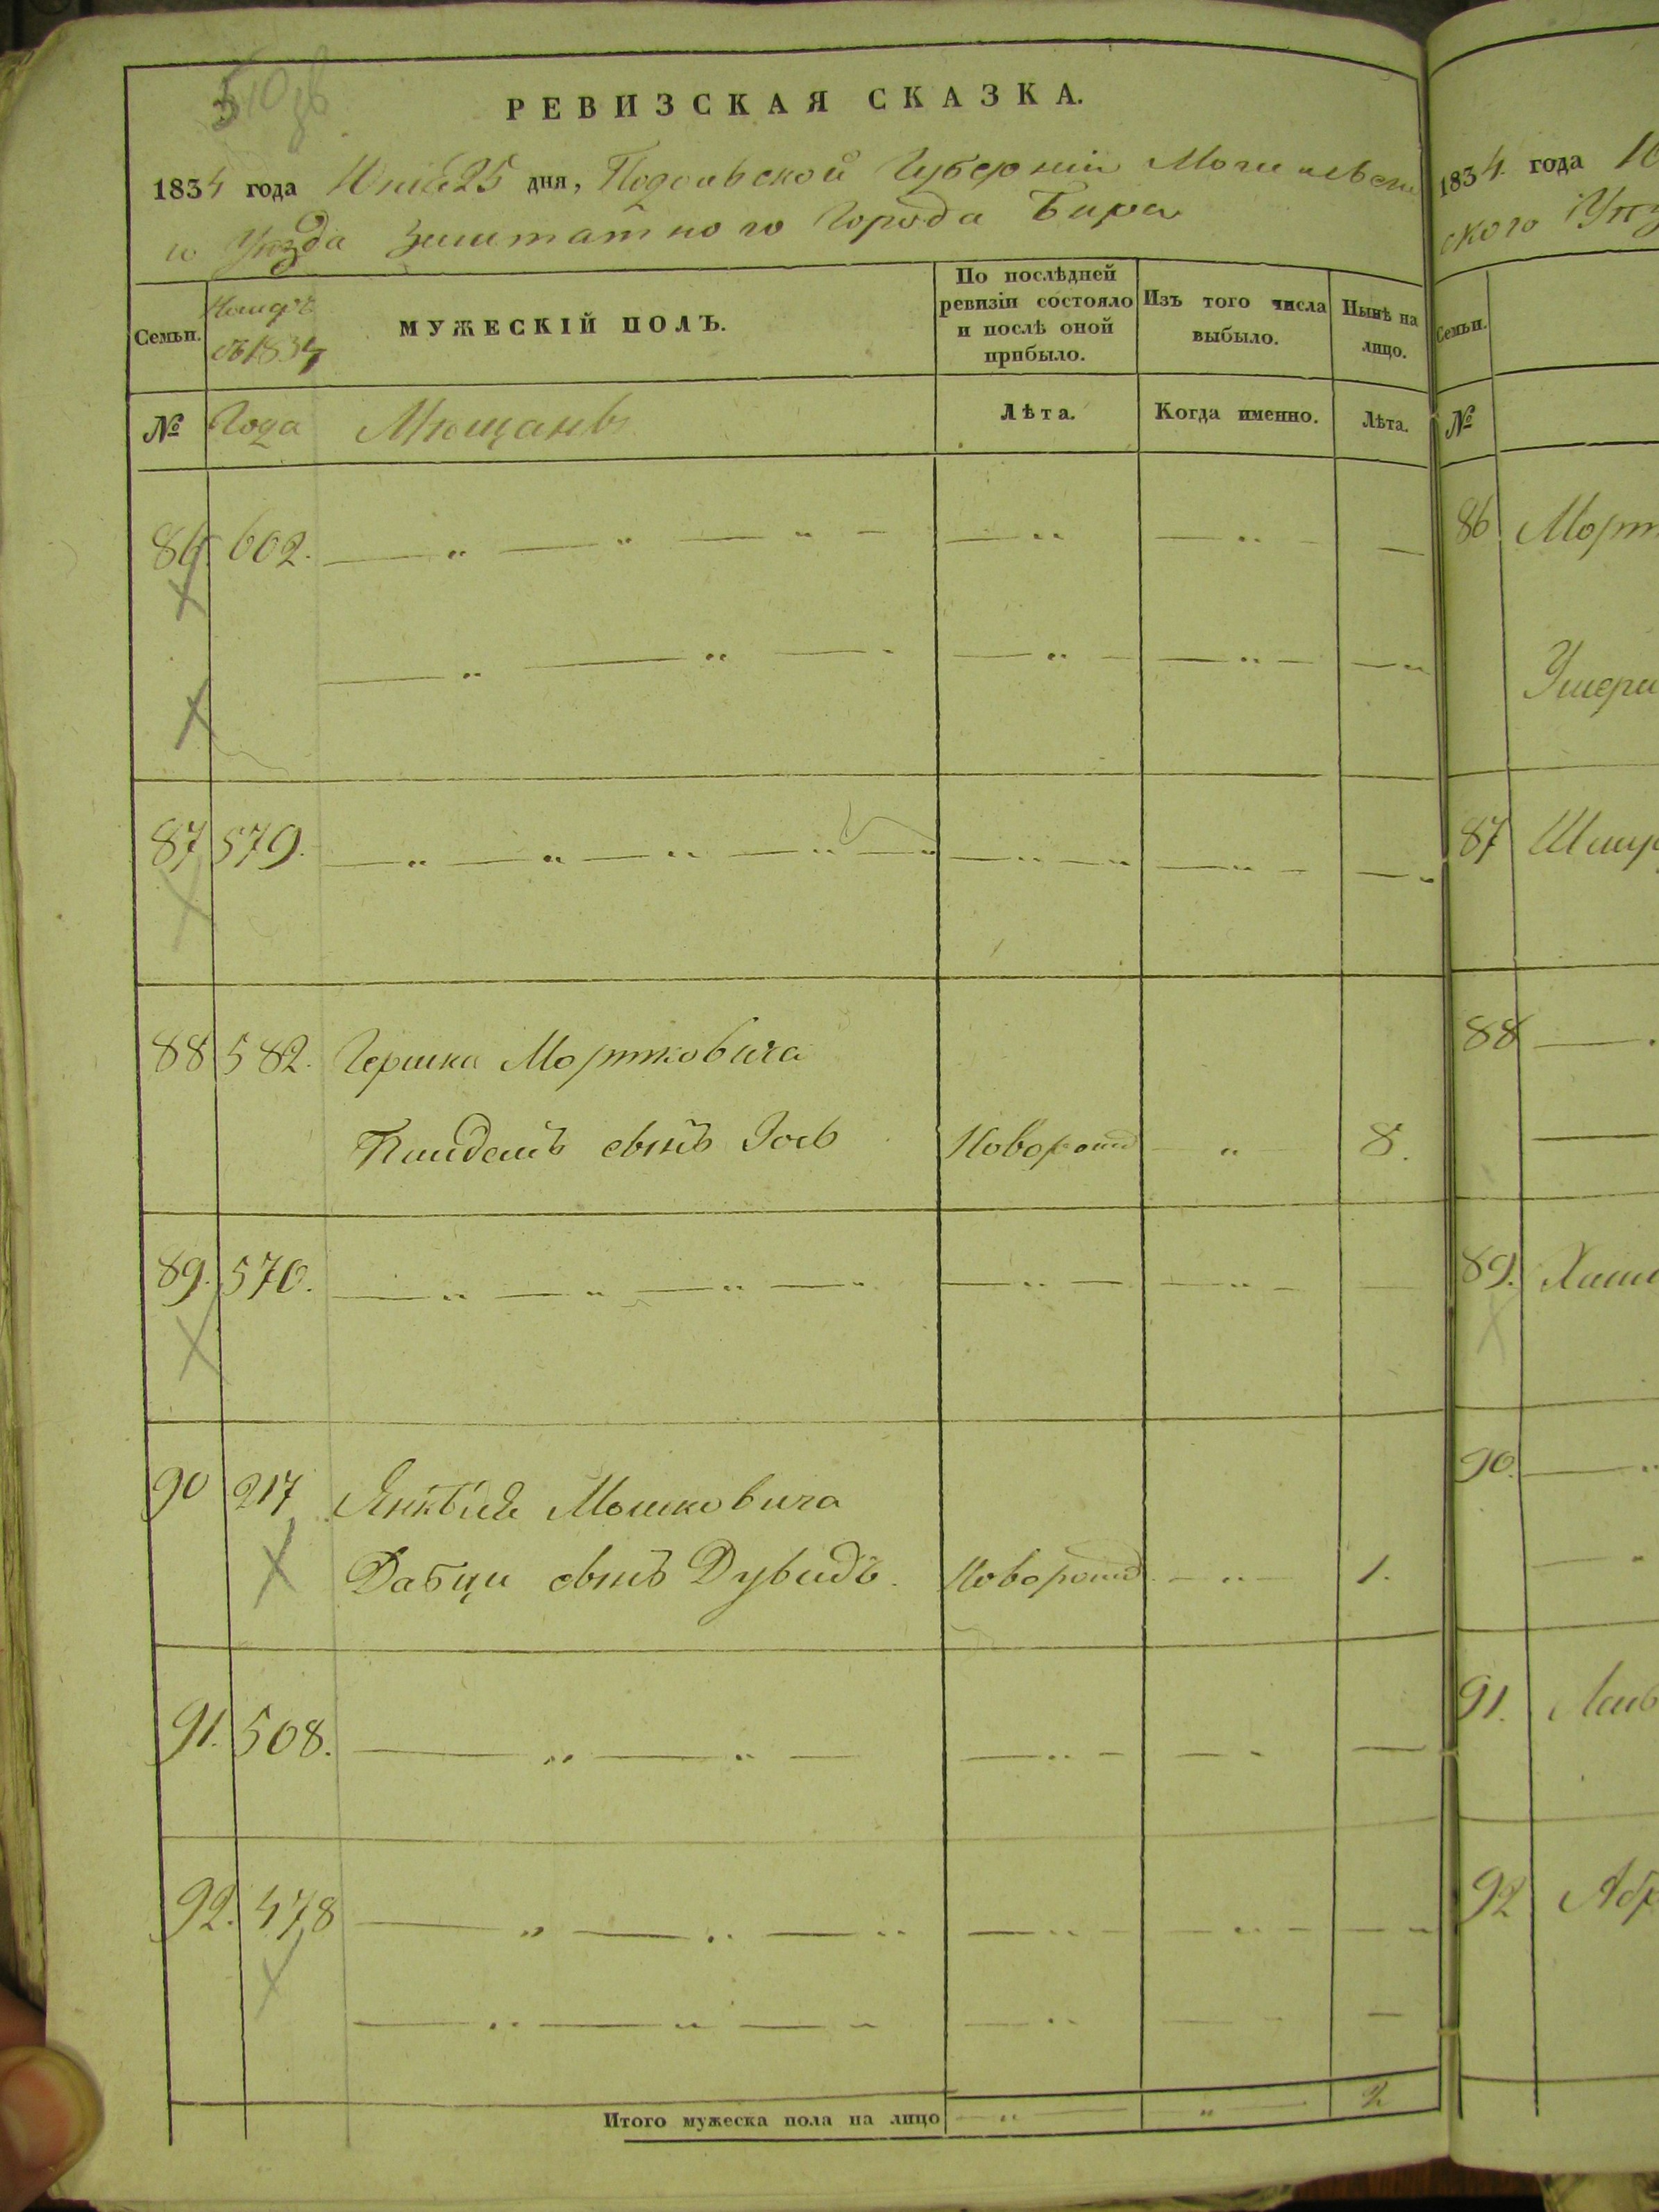 РЕВИЗСКАЯ СКАЗКА.
1834 года Юнія 25 дня, Подольской Губерніи Могилевска
го Уѣзда Заштатного Города Бара
Семьи.
МУЖЕСКІЙ ПОЛЪ.
По послѣдней ревизіи состояло и послѣ оной прибыло.
Изъ того числа выбыло.
Нынѣ на лицо.
№ Года Мѣщанъ Лѣта. Когда именно. Лѣта.
86. 602. — „ — „ — „ —
— „ — „ —
87 579. — „ — „ — „ — „ —
88 582. Гершка Мортковича
сынъ Іосъ Новорожд — „ — 8.
89. 570. — „ — „ — „ — „
90 217 Янкеля Мошковича
сынъ Дувидъ. Новорожд. — „ — 1.
91. 508. — „ — „ —
92. 478 — „ — „ — „
— „ — „ — „
Итого мужеска пола на лицо — „ — „ — 2
1834 года Ю
ского Уѣз
Семьи.
№
86 Морт
Умери
87
88 — „
89.
90. — „
91. Лейб
92 Абр